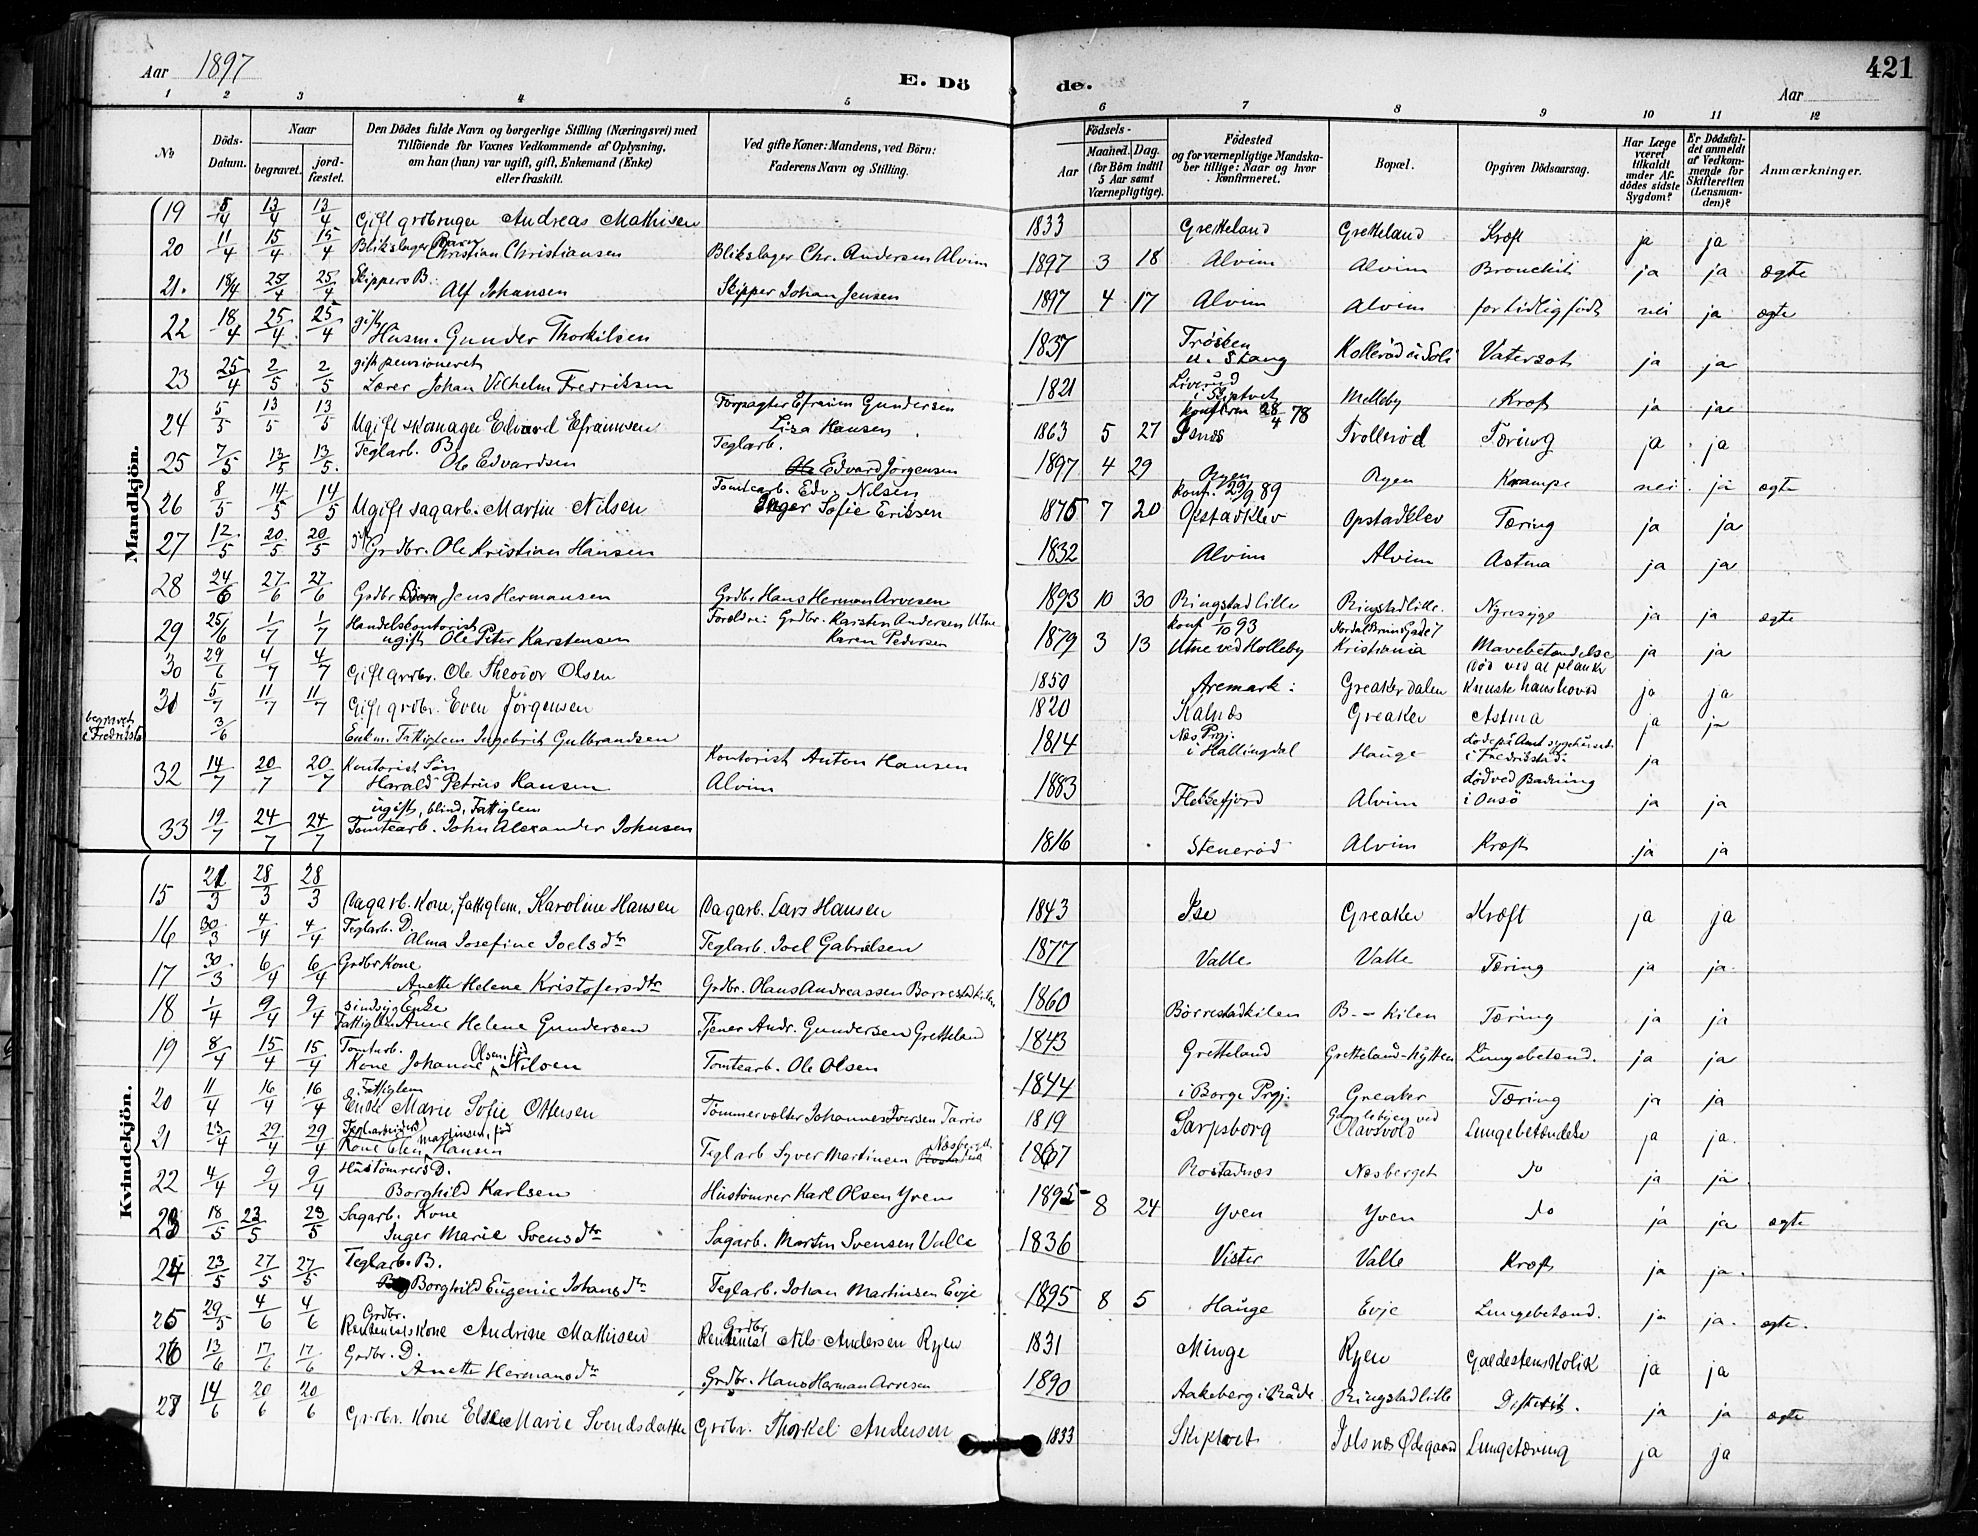 Aar 1897
E. Dö de.
421
Aar
1 2 3 4 5 6 7 8 9 10 11 12
No
Döds-Datum.
Naar
begravet.
jord-fæstet.
Den Dödes fulde Navn og borgerlige Stilling (Næringsvei) med Tilföiende for Voxnes Vedkommende af Oplysning, om han (hun) var ugift, gift, Enkemand (Enke) eller fraskilt.
Ved gifte Koner: Mandens, ved Börn: Faderens Navn og Stilling.
Födsels-
Aar
Maaned. Dag.
(for Börn indtil 5 Aar samt Værnepligtige).
Födested og for værnepligtige Mandskaber tillige: Naar og hvor konfirmeret.
Bopæl.
Opgiven Dödsaarsag.
Har Læge været tilkaldt under Afdödes sidste Sygdom?
Er Dödsfaldet anmeldt af Vedkommende for Skifteretten (Lensmanden)?
Anmærkninger.
Mandkjön.
19 8/4 13/4 13/4 Gift grdbruger Andreas Mathisen 1833 Gretteland Gretteland Kræft ja ja
20 11/4 15/4 15/4 Blikslager Barn Christian Christiansen Blikslager Chr. Andersen Alvim 1897 3 18 Alvim Alvim Bronckit ja ja ægte
21. 18/4 25/4 25/4 Skippers B. Alf Johansen Skipper Johan Jensen 1897 4 17 Alvim Alvim for tidlig født nei ja ægte
22 18/4 25/4 25/4 gift Husm. Gunder Thorkilsen 1837 Trösken u. Stang Kollerød u. Soli Vatersot ja ja
23 25/4 2/5 2/5 gift pensioneret Lærer Johan Vilhelm Fredriksen 1821 Liverud i Skiptvet Melleby Kræft ja ja
24 5/5 13/5 13/5 Ugift skomager Edvard Efraimsen Forpagter Efraim Gundersen Lisa Hansen 1863 5 27 konfirm 28/4 78 Trollerød Tæring ja ja
25 7/5 13/5 13/5. Teglarb. B. Ole Edvardsen Teglarb. Edvard Jörgensen 1897 4 29 Ryen Ryen Krampe nei ja ægte
26 8/5 14/5 14/5 Ugift sagarb. Martin Nilsen Tomtearb. Edv. Nilsen Inger Sofie Eriksen 1875 7 20 konf. 29/9 89 Opstadklev Opstadklev Tæring ja ja
27 12/5 20/5 20/5 gift Grdbr. Ole Kristian Hansen 1832 Alvim Alvim Astma ja ja
28 24/6 27/6 27/6 Grdbr Barn Jens Hermansen Grdbr Hans Herman Arvesen 1893 10 30 Ringstad lille Ringstad lille. Nyresyge ja ja ægte
29 25/6 1/7 1/7 Handelskontorist ugift Ole Peter Karstensen Foreldre: Grdbr. Karsten Andersen Utne Karen Pedersen 1879 3 13 konf 1/10 93 Utne ved Holleby Nordal Bruns Gade 7 Kristiania Mavebetændelse ja ja
30 29/6 4/7 4/7 Gift grdbr. Ole Theodor Olsen 1850 Aremark: Greaker dalen Død ved at planke knuste hans hoved ja ja
31 5/7 11/7 11/7 Gift grdbr. Even Jörgensen 1820 Kalnæs Greaker Astma ja ja
begravet i Fredrikstad 3/6 Enkm. Fattiglem Ingebrit Gulbrandsen 1814 Næs Prgj. i Hallingdal Hauge døde på Amt sygehuset i Fredrikstad. ja
32 14/7 20/7 20/7 Kontorist Søn Harald Petrus Hansen Kontorist Anton Hansen Alvim 1883 Flekkefjord Alvim død ved Badning i Onsö ja ja
33 19/7 24/7 24/7 ugift, blind, Fattiglem Tomtearb. John Alexander Johnsen 1816 Stenerød Alvim Kræft ja ja
Kvindekjön.
15 21/3 28/3 28/3 Dagarb. Kone, fattiglem, Karoline Hansen Dagarb. Lars Hansen 1843 Ise Greaker Kræft ja ja
16 30/3 4/4 4/4 Teglarb. D. Alma Josefine Joelsdtr Teglarb. Joel Gabrielsen 1877 Valle Valle Tæring ja ja.
17 30/3 6/4 6/4 Grdbr Kone Anette Helene Kristofersdtr Grdbr. Olaus Andreassen Borrestadkilen 1860 Börrestadkilen B. - kilen Tæring ja ja
18 1/4 9/4 9/4 sindsyg Enke Fattiglem Anne Helene Gundersen Tjener Andr. Gundersen Gretteland 1843 Gretteland Gretteland-Hytten Lungebetænd. ja ja
19 8/4 15/4 15/4 Tomtarb. Kone Johanne Olsen, fød Nilsen Tomtearb. Ole Olsen 1844 i Borge Prgj. Greaker Tæring ja ja
20 11/4 16/4 16/4 Fattiglem Enke Marie Sofie Ottesen Tömmervælter Johannes Iversen Tarris 1819 Sarpsborg Gamlebyen ved Olavsvold Lungebetændelse ja ja.
21 23/4 29/4 29/4 Teglarbeiders Kone Elen Martinsen, fød Hansen Teglarb Syver Martinsen Næsberget 1867 Rostadnæs Næsberget do ja ja.
22 4/4 9/4 9/4 Hustömrers D. Borghild Karlsen Hustömrer Karl Olsen Yven 1895 8 24 Yven Yven do ja ja ægte
23 18/5 23/5 23/5 Sagarb. Kone Inger Marie Svensdtr Sagarb. Martin Svensen Valle 1836 Vister Valle Kræft ja ja.
24 23/5 27/5 27/5 Teglarb. B. Borghild Eugenie Johansdtr Teglarb. Johan Martinsen Evje 1895 8 5 Hauge Evje Lungebetænd. ja ja. ægte.
25 29/5 4/6 4/6 Grdbr. Rentenists Kone Andrine Mathisen Grdbr Rentenist Nils Andersen Ryen 1831 Minge Ryen Galdestens Kolik ja ja
26 13/6 17/6 17/6 Grdbr. D. Anette Hermansdtr Grdbr. Hans Herman Arvesen 1890 Aakeberg i Råde Ringstad lille Difterit. ja ja ægte
27 14/6 20/6 20/6 Grdbr. Kone Else Marie Svendsdatter Grdbr. Thorkel Andersen 1833 Skiptvet Isesnæs Ødegaard Lungetæring ja ja